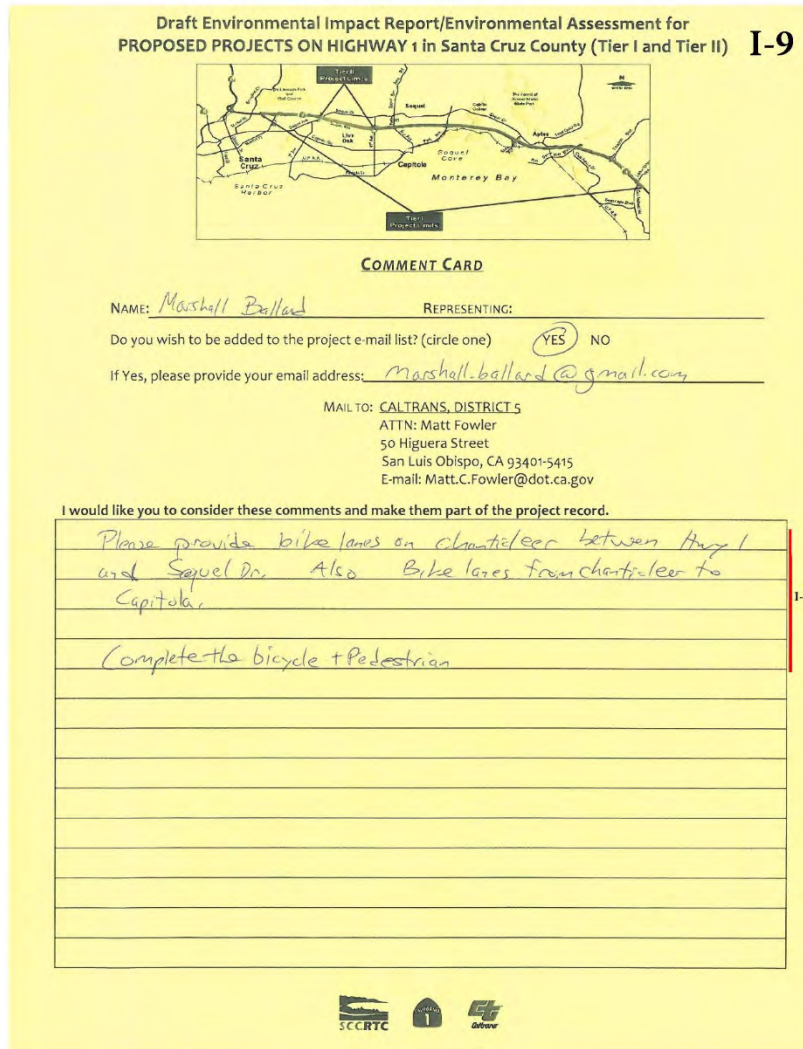 Draft Environmental Impact Report/Environmental Assessment for
PROPOSED PROJECTS ON HIGHWAY 1 in Santa Cruz County (Tier I and Tier II)
I-9
Tier II
Project Limits
N
Soquel
Live
Oak
Aptos
Santa
Cruz
Capitola
Soquel
Cove
Monterey Bay
Santa Cruz
Harbor
Tier I
Project Limits
COMMENT CARD
NAME: Marshall Ballard REPRESENTING:
Do you wish to be added to the project e-mail list? (circle one) YES NO
If Yes, please provide your email address: Marshall.ballard@gmail.com
MAIL TO: CALTRANS, DISTRICT 5
ATTN: Matt Fowler
50 Higuera Street
San Luis Obispo, CA 93401-5415
E-mail: Matt.C.Fowler@dot.ca.gov
I would like you to consider these comments and make them part of the project record.
Please provide bike lanes on Chanticleer betwen Hwy 1
and Soquel Dr. Also Bike lanes from chanticleer to
Capitola.
I-
Complete the bicycle + Pedestrian
SCCRTC
1
Caltrans